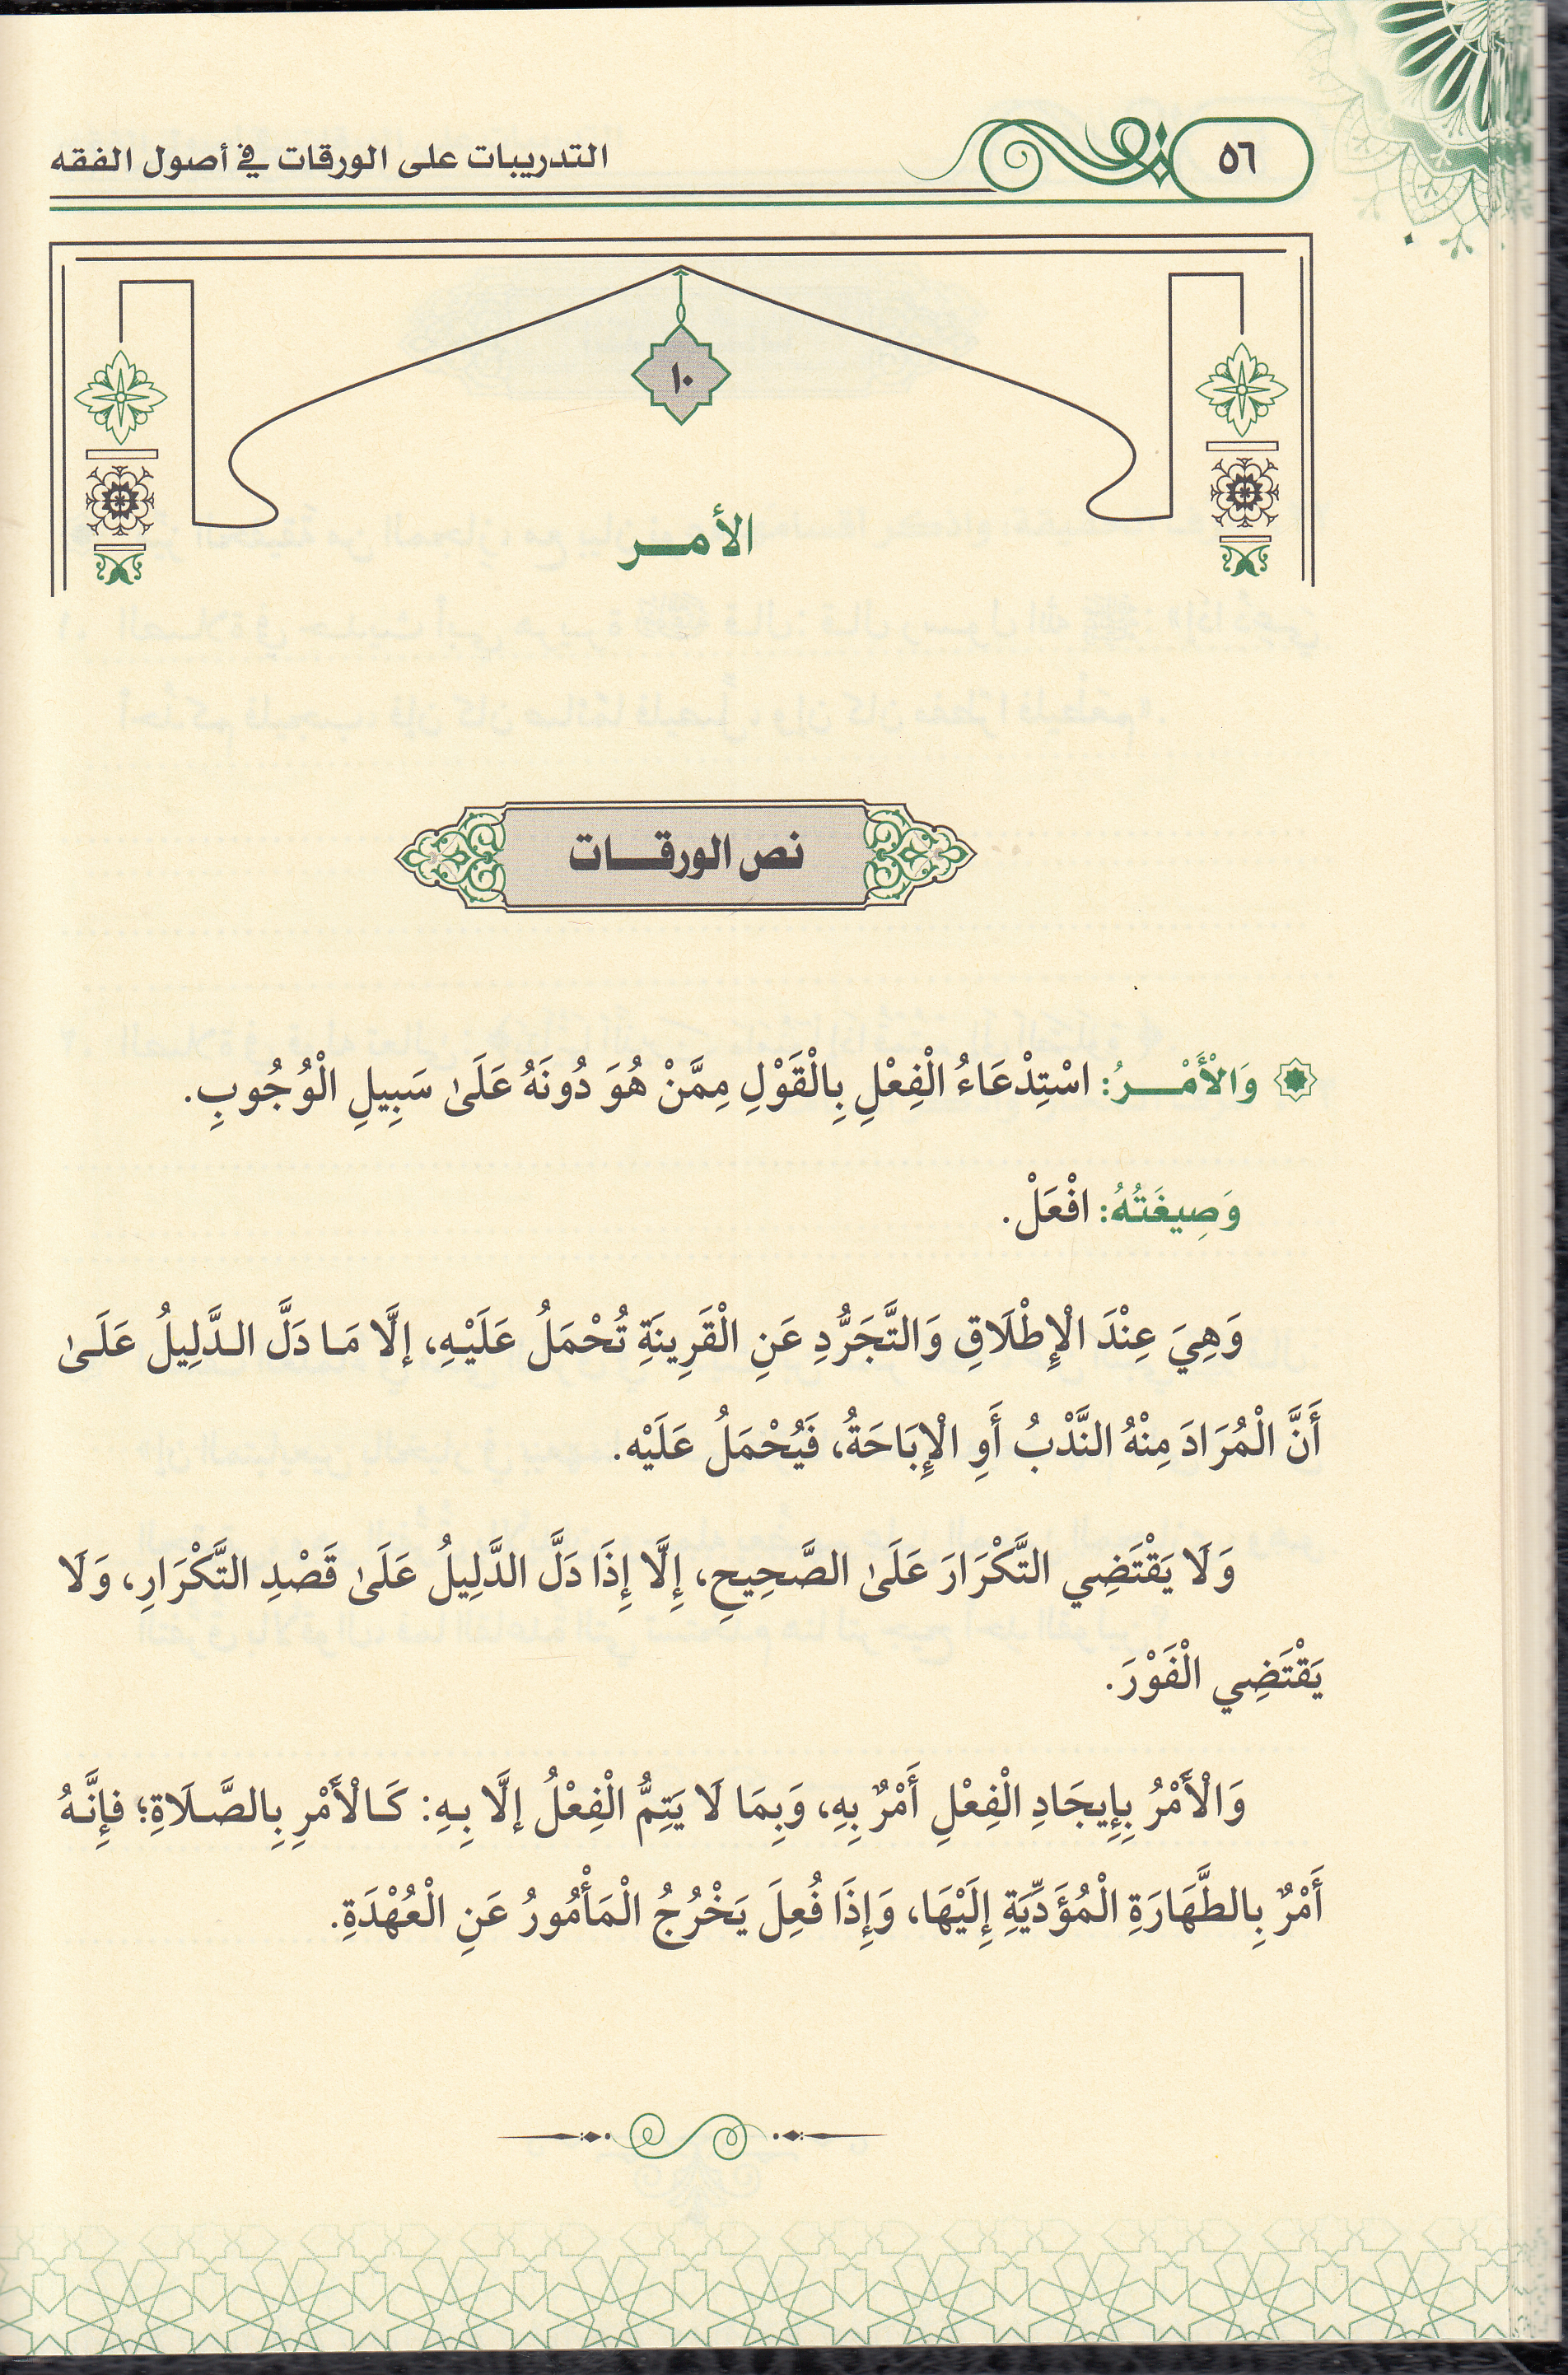 ٥٦
التدريبات على الورقات في أصول الفقه
١٠
الأمـر
نص الورقـات
وَالْأَمْـرُ: اسْتِدْعَاءُ الْفِعْلِ بِالْقَوْلِ مِمَّنْ هُوَ دُونَهُ عَلَىٰ سَبِيلِ الْوُجُوبِ.
وَصِيغَتُهُ: افْعَلْ.
وَهِيَ عِنْدَ الْإِطْلَاقِ وَالتَّجَرُّدِ عَنِ الْقَرِينَةِ تُحْمَلُ عَلَيْهِ، إلَّا مَا دَلَّ الدَّلِيلُ عَلَىٰ
أَنَّ الْمُرَادَ مِنْهُ النَّدْبُ أَوِ الْإِبَاحَةُ، فَيُحْمَلُ عَلَيْه.
وَلَا يَقْتَضِي التَّكْرَارَ عَلَىٰ الصَّحِيحِ، إِلَّا إِذَا دَلَّ الدَّلِيلُ عَلَىٰ قَصْدِ التَّكْرَارِ، وَلَا
يَقْتَضِي الْفَوْرَ.
وَالْأَمْرُ بِإِيجَادِ الْفِعْلِ أَمْرٌ بِهِ، وَبِمَا لَا يَتِمُّ الْفِعْلُ إلَّا بِهِ: كَالْأَمْرِ بِالصَّلَاةِ؛ فإِنَّهُ
أَمْرٌ بِالطَّهَارَةِ الْمُؤَدِّيَةِ إِلَيْهَا، وَإِذَا فُعِلَ يَخْرُجُ الْمَأْمُورُ عَنِ الْعُهْدَةِ.